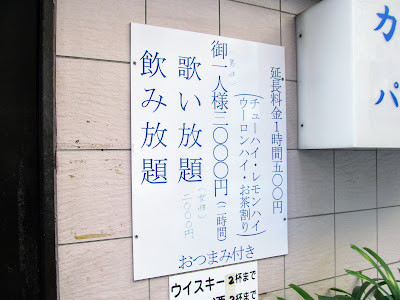 カ
パ
延長料金1時間五〇〇円
(チューハイ・レモンハイ
ウーロンハイ・お茶割り)
男性
御一人様三〇〇〇円(二時間)
歌い放題
(女性)
二〇〇〇円
飲み放題
おつまみ付き
ウイスキー 2杯まで
酒 2杯まで